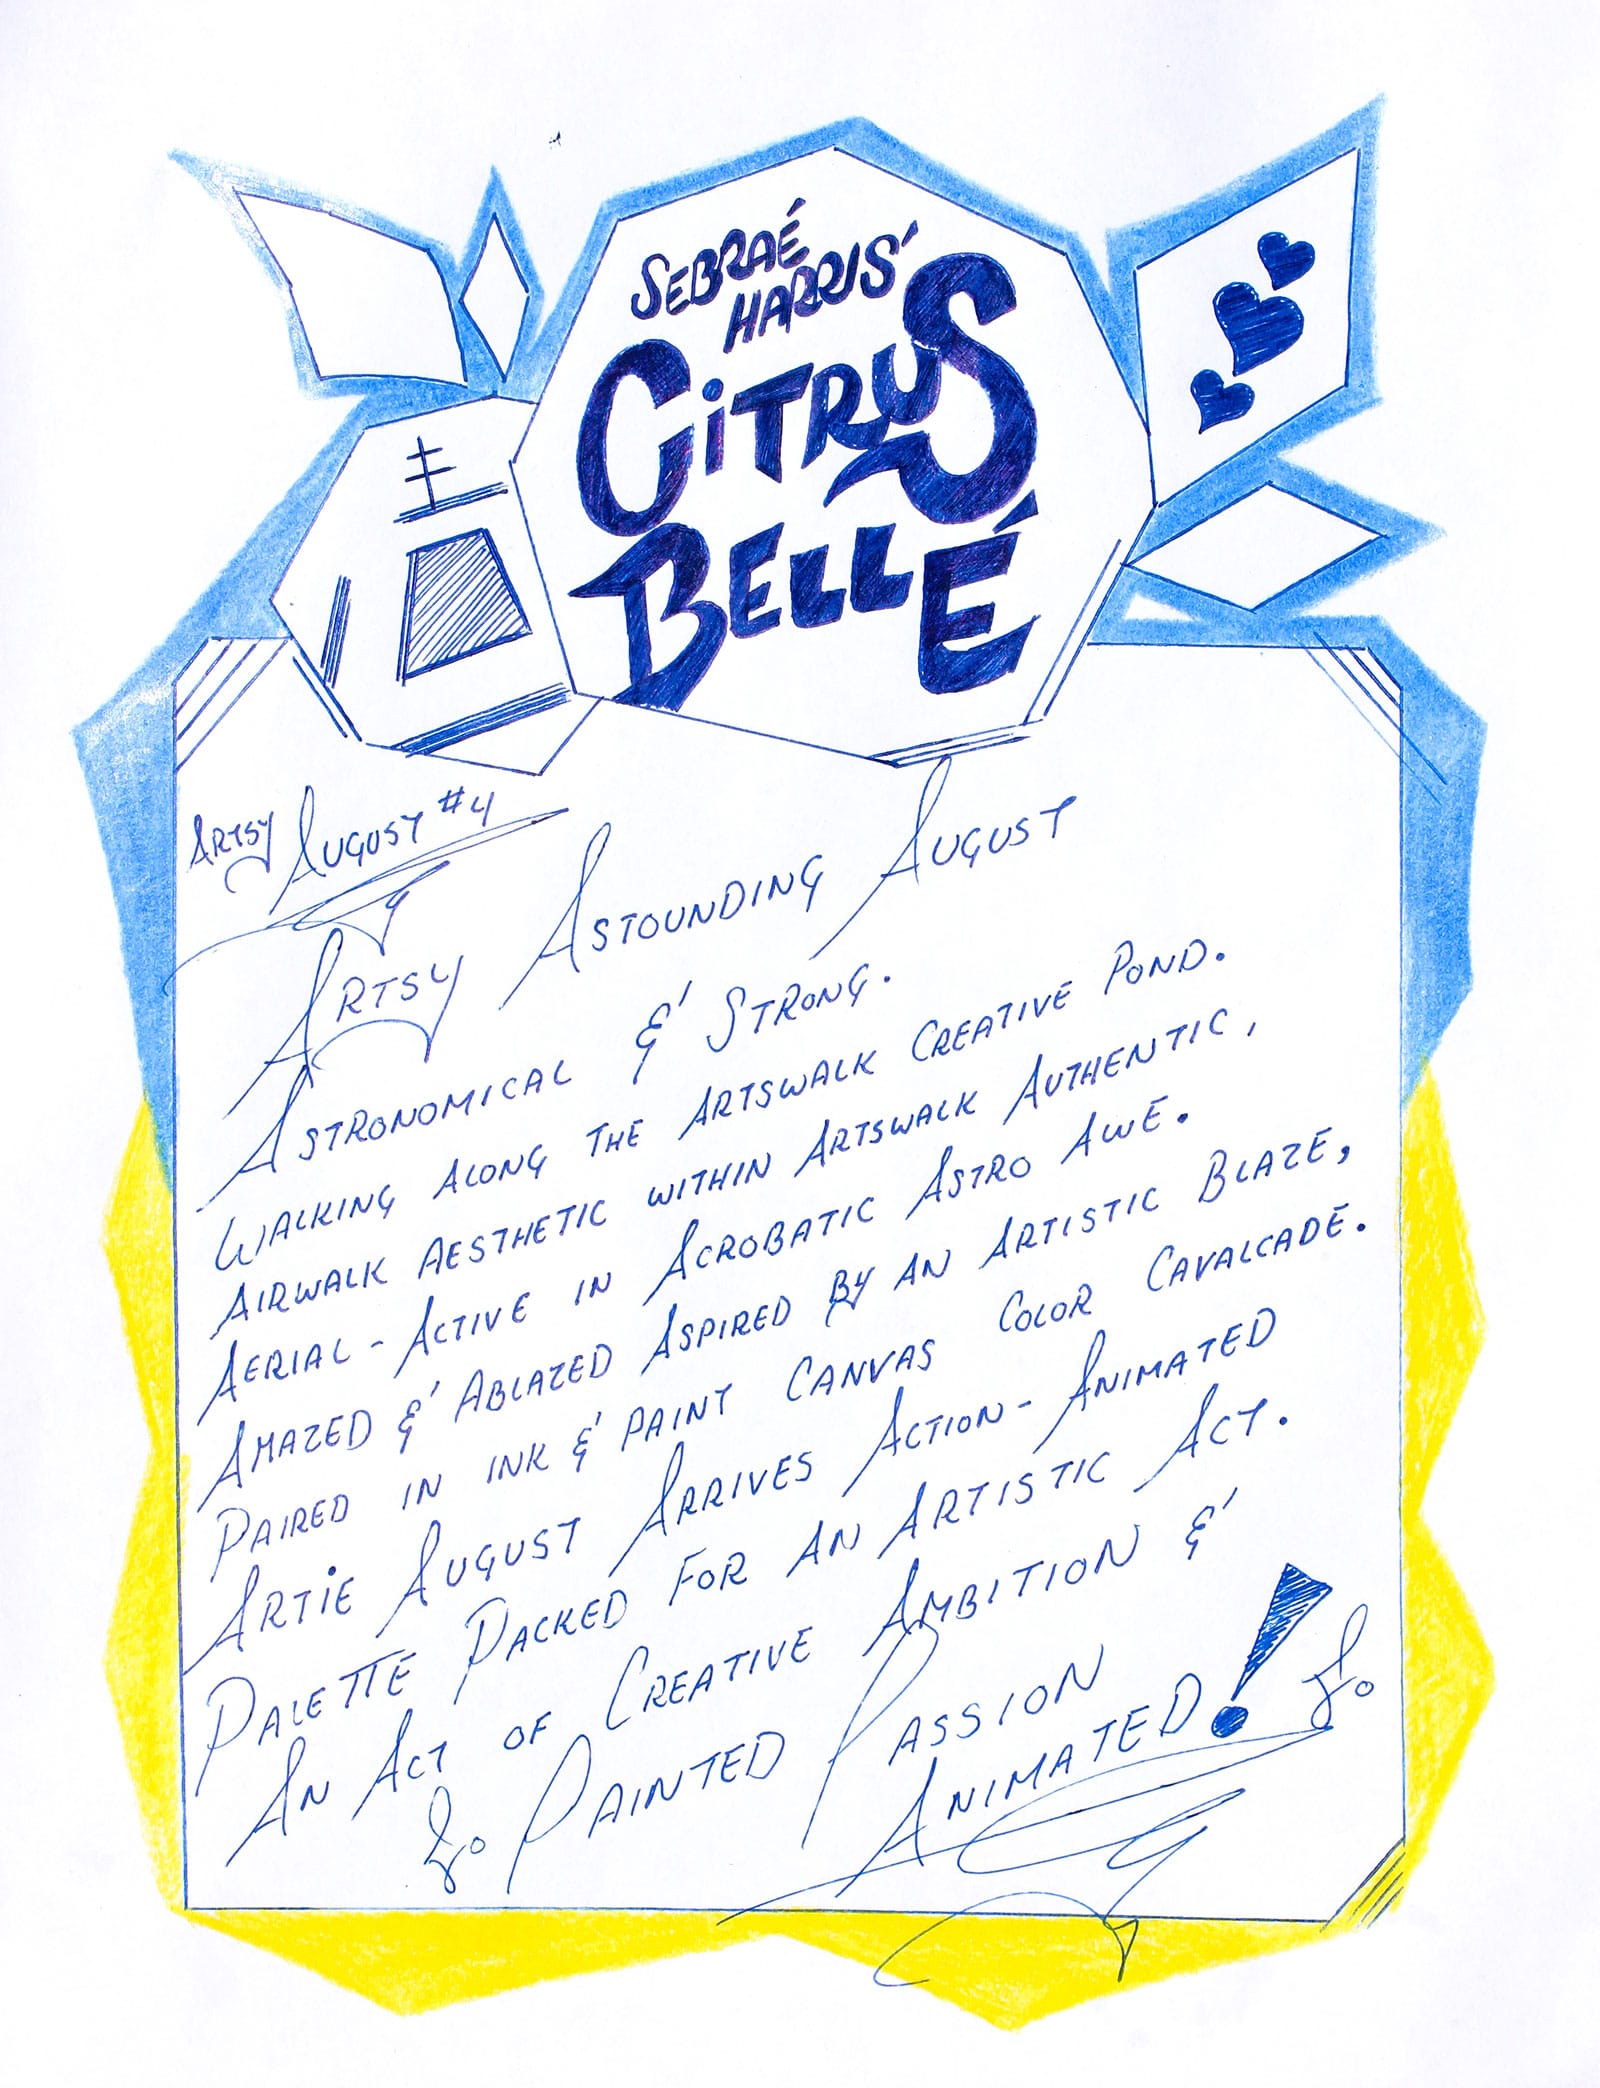 SEBRAÉ
HARRIS'
CiTRUS
BELLÉ
ARTSY AUGUST #4
ARTSY ASTOUNDING AUGUST
ASTRONOMICAL &' STRONG.
WALKING ALONG THE ARTSWALK CREATIVE POND.
AIRWALK AESTHETIC WITHIN ARTSWALK AUTHENTIC,
AERIAL-ACTIVE IN ACROBATIC ASTRO AWE.
AMAZED &' ABLAZED ASPIRED BY AN ARTISTIC BLAZE,
PAIRED IN INK &' PAINT CANVAS COLOR CAVALCADE.
ARTiE AUGUST ARRIVES ACTION-ANIMATED
PALETTE PACKED FOR AN ARTISTIC ACT.
AN ACT OF CREATIVE AMBITION &'
PAINTED PASSION
ANIMATED!